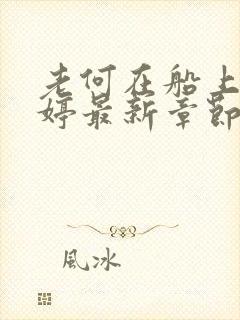 老何在船上
婷最新章節
風冰